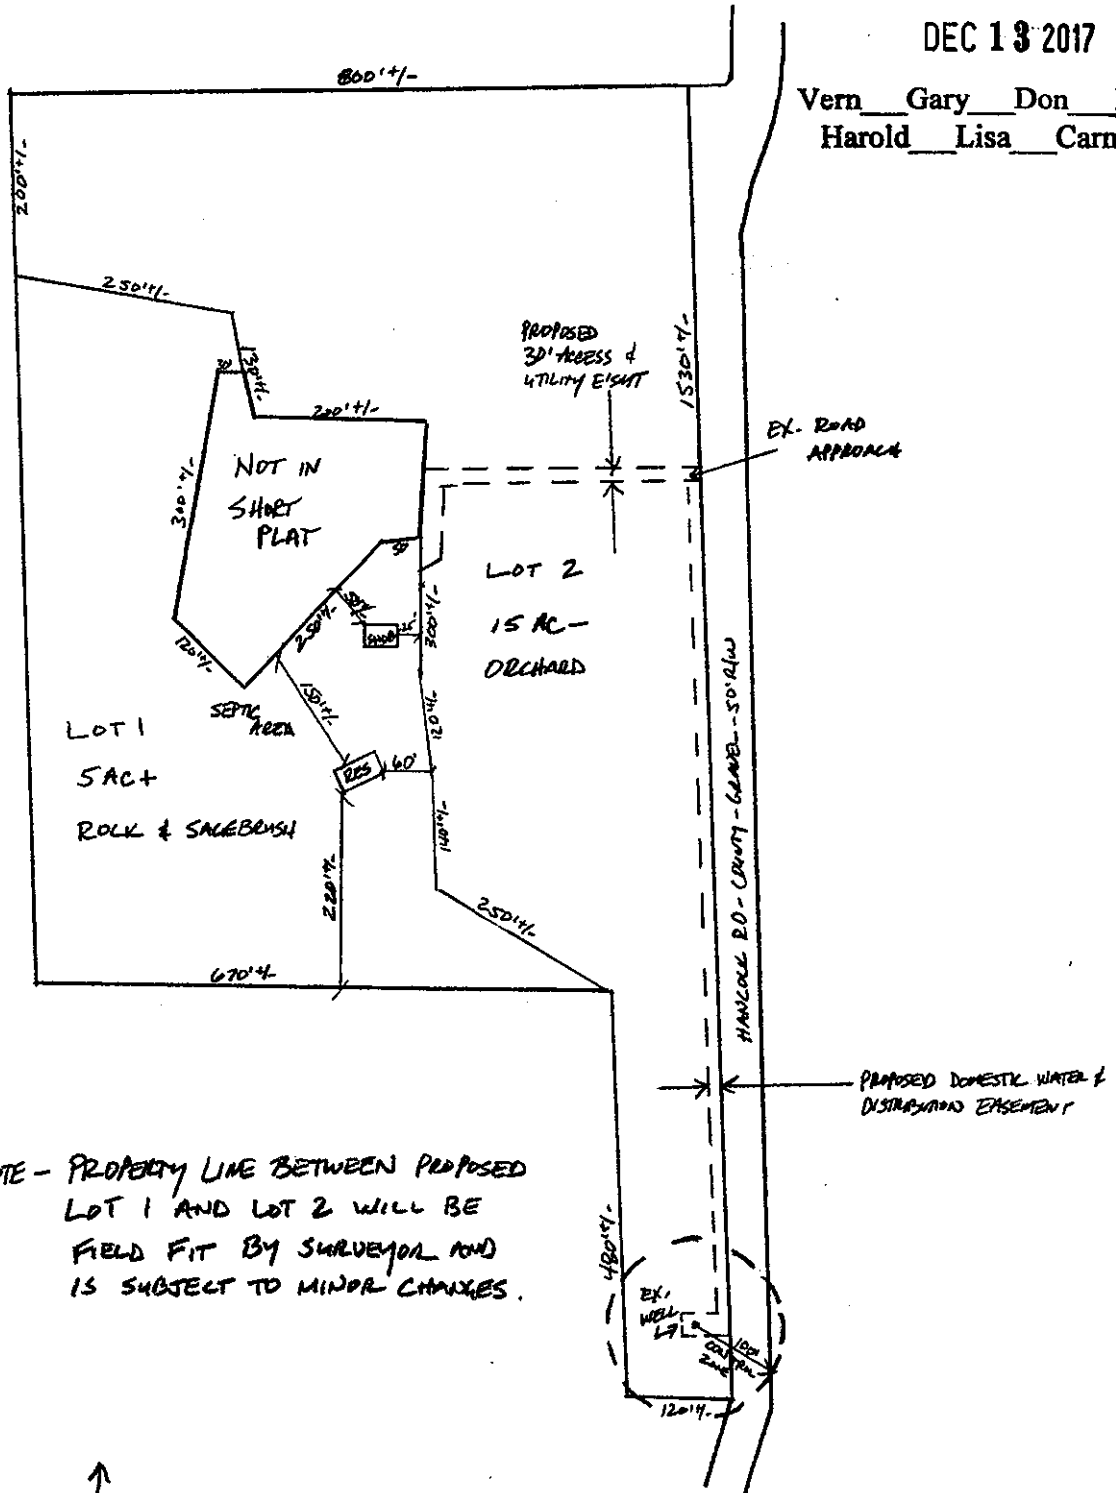 DEC 13 2017
Vern___Gary___Don___
Harold___Lisa___Carn
800'+/-
200'+/-
250'+/-
130'+/-
30'
200'+/-
PROPOSED
30' ACCESS &
UTILITY E'SMT
1530'+/-
EX. ROAD
APPROACH
NOT IN
SHORT
PLAT
300'+/-
50'
LOT 2
15 AC-
ORCHARD
50'+/-
SHOP
25'
300'+/-
250'+/-
120'+/-
SEPTIC
AREA
150'+/-
120'+/-
LOT 1
5 AC+
ROCK & SAGEBRUSH
RES
60'
140'+/-
220'+/-
250'+/-
670'+/-
HANCOCK RD - COUNTY - GRAVEL - 50' R/W
PROPOSED DOMESTIC WATER &
DISTRIBUTION EASEMENT
TE - PROPERTY LINE BETWEEN PROPOSED
LOT 1 AND LOT 2 WILL BE
FIELD FIT BY SURVEYOR AND
IS SUBJECT TO MINOR CHANGES.
480'+/-
EX.
WELL
100'
CONTROL
ZONE
120'+/-